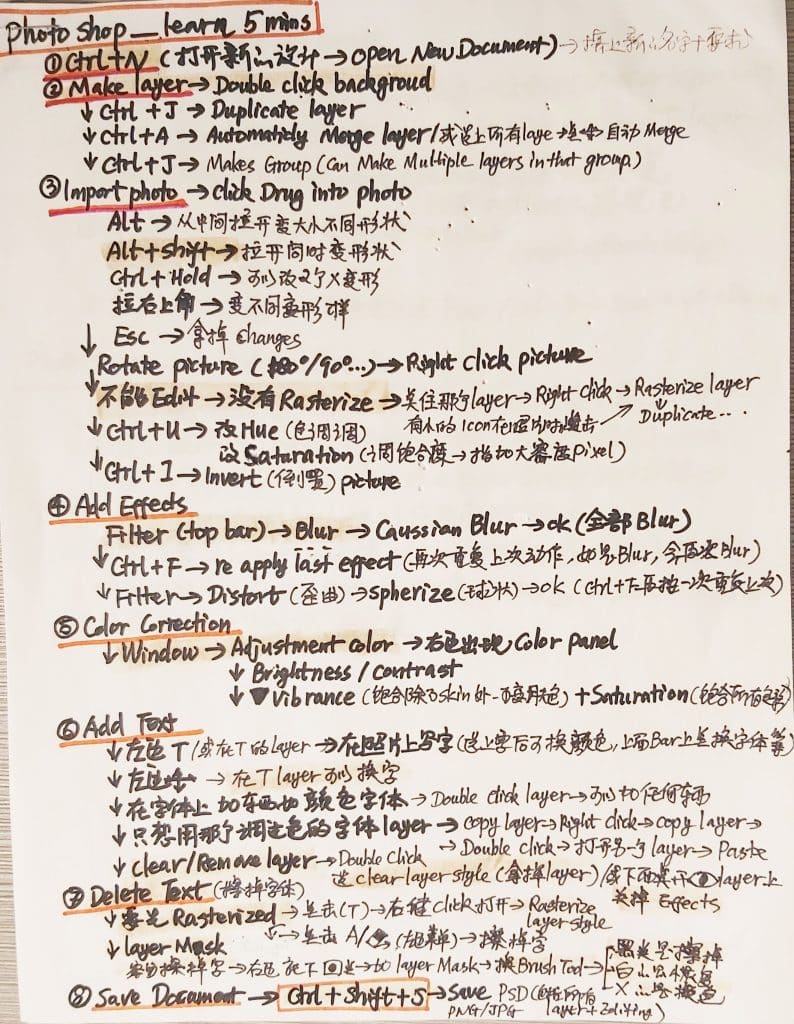 Photo shop_learn 5 mins
① Ctrl+N (打开新的设计→Open New Document)→新的名字+要求
② Make layer→Double click backgroud
↓ Ctrl + J → Duplicate layer
↓ Ctrl+A → Merge layer/或选上所有laye 自动 Merge
↓ Ctrl+J→ Makes Group (Can Make Multiple layers in that group.)
③ Import photo →click Drug into photo
Alt → 从中间拉开变大小不同形状
Alt+shift→拉开同时变形状
Ctrl+Hold → 可以改变形
拉右上角→变不同变形
↓ Esc →拿掉 changes
↓ Rotate picture (180°/90°...)→Right click picture
↓ 不能够Edit →没有Rasterize →layer→Right click→Rasterize layer
有小的Icon在照片时点击 → Duplicate...
↓ Ctrl+U→ 改Hue (色调调)
改 Saturation (调饱合度→增加大Pixel)
↓ Ctrl+I→Invert (倒置) picture
④ Add Effects
Filter (top bar)→Blur →Gaussian Blur→ok (全部Blur)
↓ Ctrl+F→ re apply last effect (再次重复上次动作，如果Blur，会再次Blur)
↓ Filter→ Distort (歪曲)→Spherize (球状)→ok (Ctrl+F再按一次重复上次)
⑤ Color Correction
↓ Window →Adjustment color →右边出现 Color panel
↓ Brightness / contrast
↓ ▼ Vibrance (饱合除了skin外) +Saturation(饱合所有)
⑥ Add Text
↓ 左边 T /或在T的layer→在照片上写字(选上字后可换颜色，上面Bar上换字体等)
↓ 左边 → 在T layer可以换字
↓ 在字体上加东西如颜色字体→Double click layer→可以加任何东西
↓ 只想用那个调过色的字体layer→copy layer→Right click→copy layer→
→ Double click→打开另一个layer→Paste
↓ clear/Remove layer→Double click
选clear layer style (拿掉layer)/或下面layer上
关掉 Effects
⑦ Delete Text (擦掉字体)
↓ 要先Rasterized→点击(T)→右键click打开→Rasterize layer style
↓ layer Mask →点击(左边菜单)→擦掉字
擦掉字→右边底下→to layer Mask→换Brush Tool→黑是擦掉
⑧ Save Document → Ctrl+Shift+S→Save PSD (所有layer+Editing)
PNG/JPG